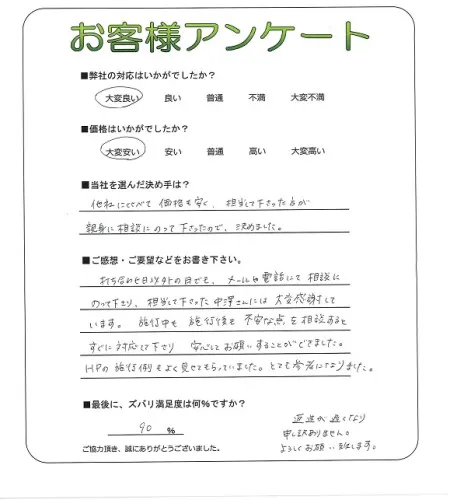 お客様アンケート
■弊社の対応はいかがでしたか？
大変良い 良い 普通 不満 大変不満
■価格はいかがでしたか？
大変安い 安い 普通 高い 大変高い
■当社を選んだ決め手は？
他社に比べて価格も安く、担当して下さった方が
親身に相談にのって下さったので、決めました。
■ご感想・ご要望などをお書き下さい。
打ち合わせ日以外の日でも、メールや電話にて相談に
のって下さり、担当して下さった中澤さんには大変感謝して
います。施行中も施行後も不安な点を相談すると
すぐに対応して下さり 安心してお願いすることができました。
HPの施行例もよく見せてもらっていました。とても参考になりました。
■最後に、ズバリ満足度は何%ですか？
90 %
返送が遅くなり
申し訳ありません。
よろしくお願い致します。
ご協力頂き、誠にありがとうございました。